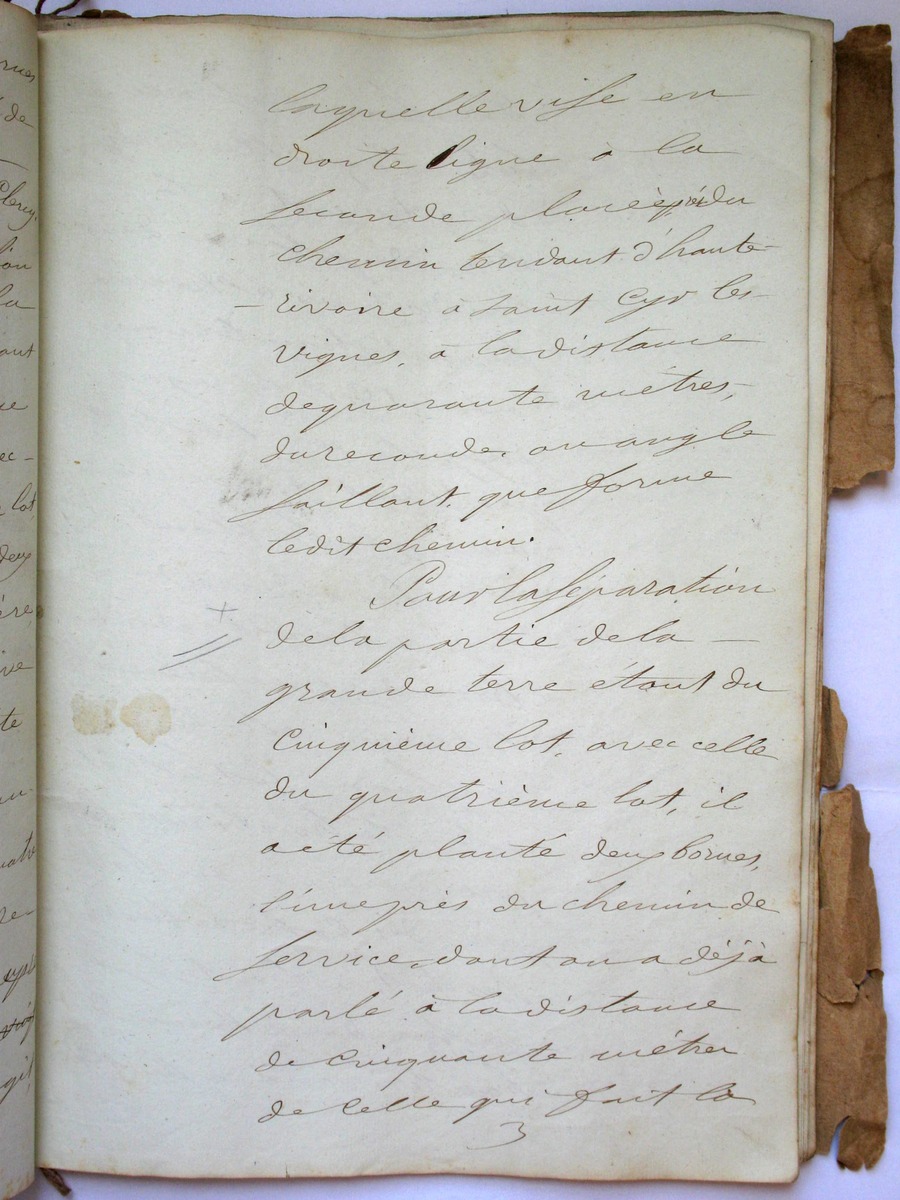 laquelle vise en
droite ligne à la
seconde placée près du
chemin tendant d'haute-
-rivoire à saint Cyr les
vignes, à la distance
de quarante mètres,
du seconde. ou angle
saillant. que forme
ledit chemin.
Pour la Séparation
de la partie de la —
grande terre étant du
cinquième lot, avec celle
du quatrième lot, il
a été planté deux bornes,
l'une près du chemin de
service, dont on a déjà
parlé à la distance
de cinquante mètres
de celle qui fait la
3